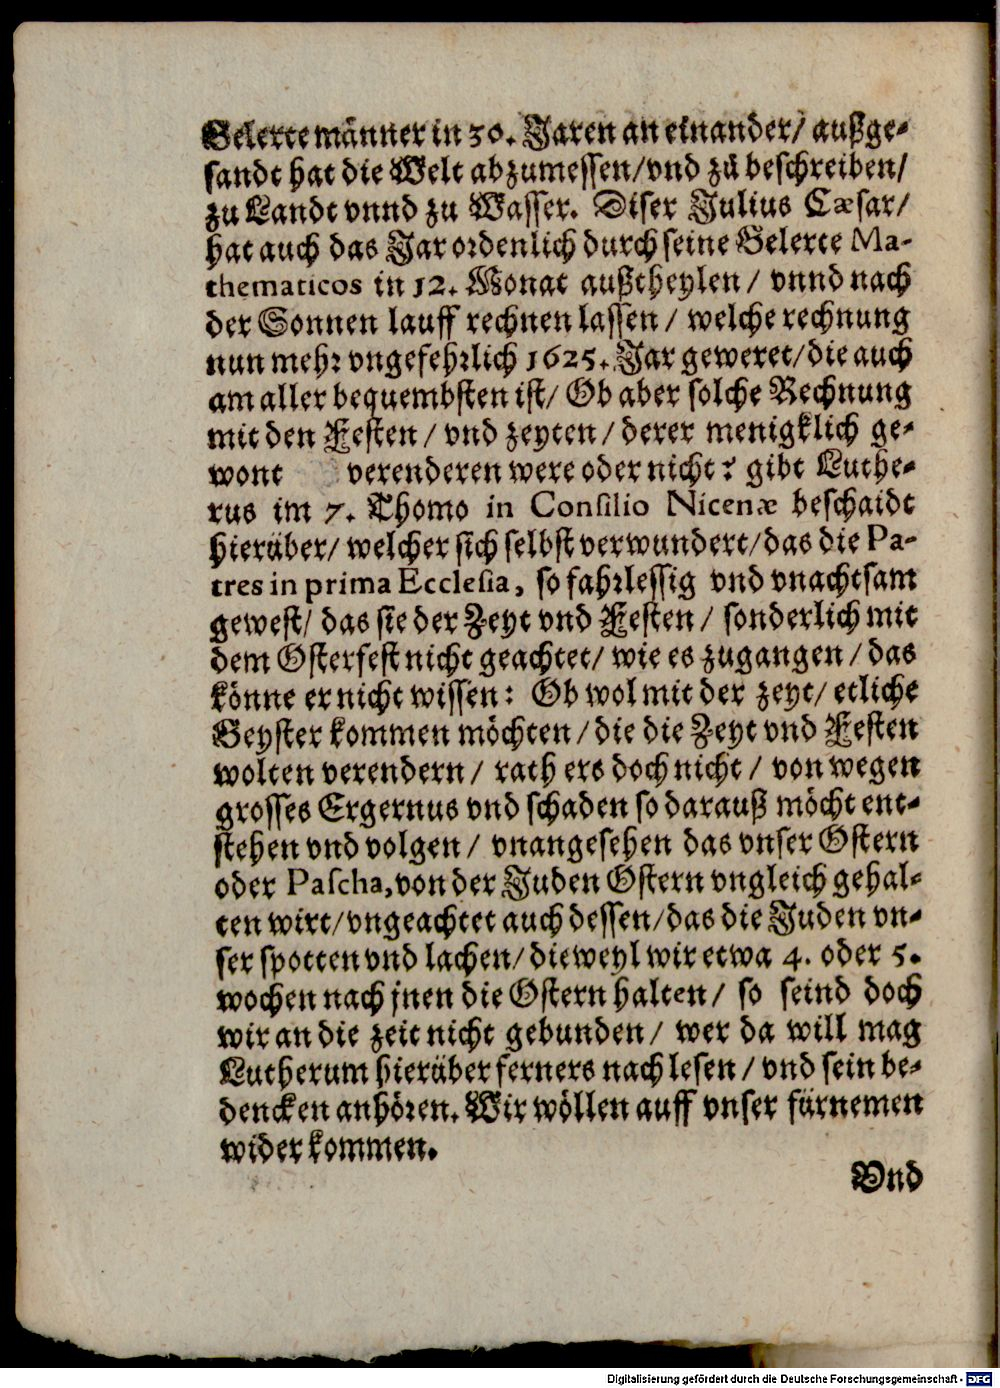 Gelerte männer in 30. Jaren an einander/ außge-
sandt hat die Welt abzumessen/ vnd zů beschreiben/
zu Landt vnnd zu Wasser. Diser Julius Cæsar/
hat auch das Jar ordenlich durch seine Gelerte Ma-
thematicos in 12. Monat außtheylen/ vnnd nach
der Sonnen lauff rechnen lassen/ welche rechnung
nun mehr vngefehrlich 1625. Jar geweret/ die auch
am aller bequembsten ist/ Ob aber solche Rechnung
mit den Festen/ vnd zeyten/ derer menigklich ge-
wont verenderen were oder nicht? gibt Luthe-
rus im 7. Thomo in Consilio Nicenæ beschaidt
hierüber/ welcher sich selbst verwundert/ das die Pa-
tres in prima Ecclesia, so fahrlessig vnd vnachtsam
gewest/ das sie der Zeyt vnd Festen/ sonderlich mit
dem Osterfest nicht geachtet/ wie es zugangen/ das
könne er nicht wissen: Ob wol mit der zeyt/ etliche
Geyster kommen möchten/ die die Zeyt vnd Festen
wolten verendern/ rath ers doch nicht/ von wegen
grosses Ergernus vnd schaden so darauß möcht ent-
stehen vnd volgen/ vnangesehen das vnser Ostern
oder Pascha, von der Juden Ostern vngleich gehal-
ten wirt/ vngeachtet auch dessen/ das die Juden vn-
ser spotten vnd lachen/ dieweyl wir etwa 4. oder 5.
wochen nach jnen die Ostern halten/ so seind doch
wir an die zeit nicht gebunden/ wer da will mag
Lutherum hierüber ferners nach lesen/ vnd sein be-
dencken anhören. Wir wöllen auff vnser fürnemen
wider kommen.
Vnd
Digitalisierung gefördert durch die Deutsche Forschungsgemeinschaft - DFG